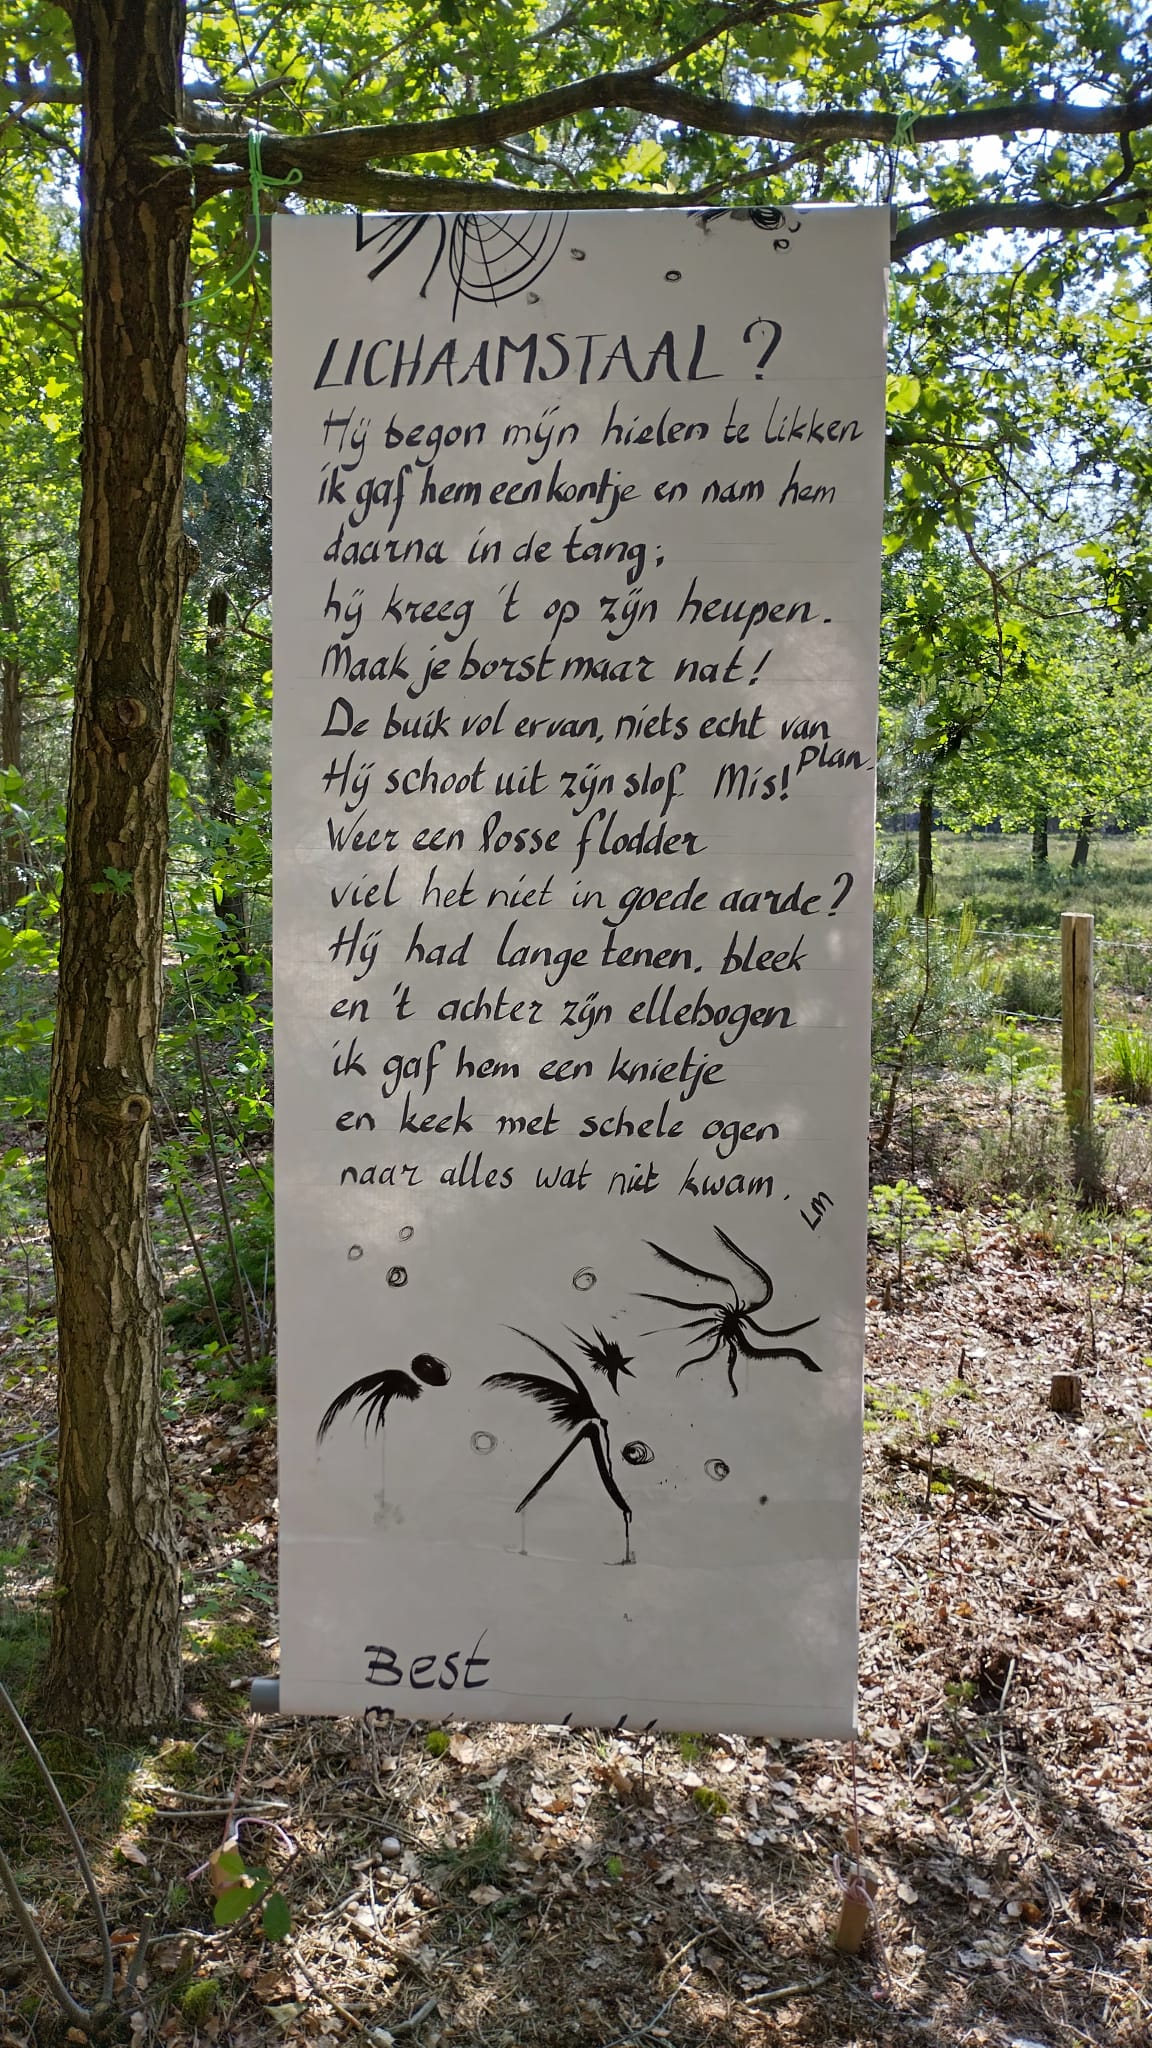 LICHAAMSTAAL ?
Hij begon mijn hielen te likken
ik gaf hem een kontje en nam hem
daarna in de tang;
hij kreeg 't op zijn heupen.
Maak je borst maar nat!
De buik vol ervan, niets echt van
plan.
Hij schoot uit zijn slof. Mis!
Weer een losse flodder
viel het niet in goede aarde?
Hij had lange tenen. bleek
en 't achter zijn ellebogen
ik gaf hem een knietje
en keek met schele ogen
naar alles wat niet kwam.
LM
Best